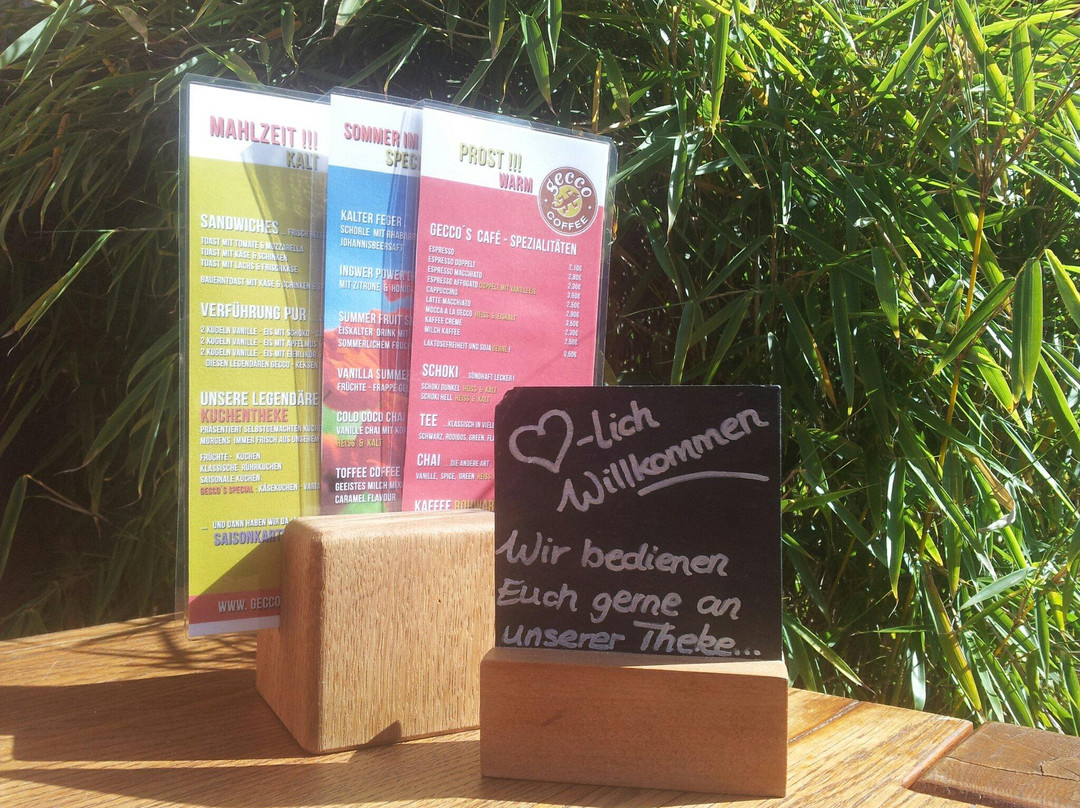 MAHLZEIT !!!
KALT
SANDWICHES
TOAST MIT TOMATE & MOZZARELLA
TOAST MIT KÄSE & SCHINKEN
TOAST MIT LACHS & FRISCHKÄSE
BAUERNTOAST MIT KÄSE & SCHINKEN &
VERFÜHRUNG PUR
2 KUGELN VANILLE - EIS MIT SCHOKO
2 KUGELN VANILLE - EIS MIT APFELMUS
2 KUGELN VANILLE - EIS MIT EIERLIKÖR
DIESEN LEGENDÄREN GECCO - KEKSEN
UNSERE LEGENDÄRE
KUCHENTHEKE
PRÄSENTIERT SELBSTGEMACHTEN KUCHEN
MORGENS IMMER FRISCH AUS UNSEREM
FRÜCHTE - KUCHEN
KLASSISCHE RÜHRKUCHEN
SAISONALE KUCHEN
GECCO´S SPECIAL - KÄSEKUCHEN -
... UND DANN HABEN WIR DA
SAISONKART
WWW. GECCO
SOMMER IM
SPEC
KALTER FEGER
SCHORLE MIT RHABARB
JOHANNISBEERSAFT
INGWER POWER
MIT ZITRONE & HONIG
SUMMER FRUIT S
EISKALTER DRINK MIT
SOMMERLICHEM FRUC
VANILLA SUMMER
FRÜCHTE - FRAPPÉ GE
COLD COCO CHAI
VANILLE CHAI MIT KO
HEISS & KALT
TOFFEE COFFEE
GEEISTES MILCH MIX
CARAMEL FLAVOUR
PROST !!!
WARM
GECCO
COFFEE
GECCO´S CAFÉ - SPEZIALITÄTEN
ESPRESSO
ESPRESSO DOPPELT
ESPRESSO MACCHIATO
ESPRESSO AFFOGATO DOPPELT MIT VANILLEEIS
CAPPUCCINO
LATTE MACCHIATO
MOCCA A LA GECCO HEISS & EISKALT
KAFFEE CREME
MILCH KAFFEE
LAKTOSEFREIHEIT UND SOJA GERNE !
SCHOKI ...SÜNDHAFT LECKER !
SCHOKI DUNKEL HEISS & KALT
SCHOKI HELL HEISS & KALT
TEE ...KLASSISCH IN VIEL
SCHWARZ, ROOIBOS, GREEN, FL
CHAI ...DIE ANDERE ART
VANILLE, SPICE, GREEN HEISS
KAFFEE
♡-lich
Willkommen
Wir bedienen
Euch gerne an
unserer Theke...